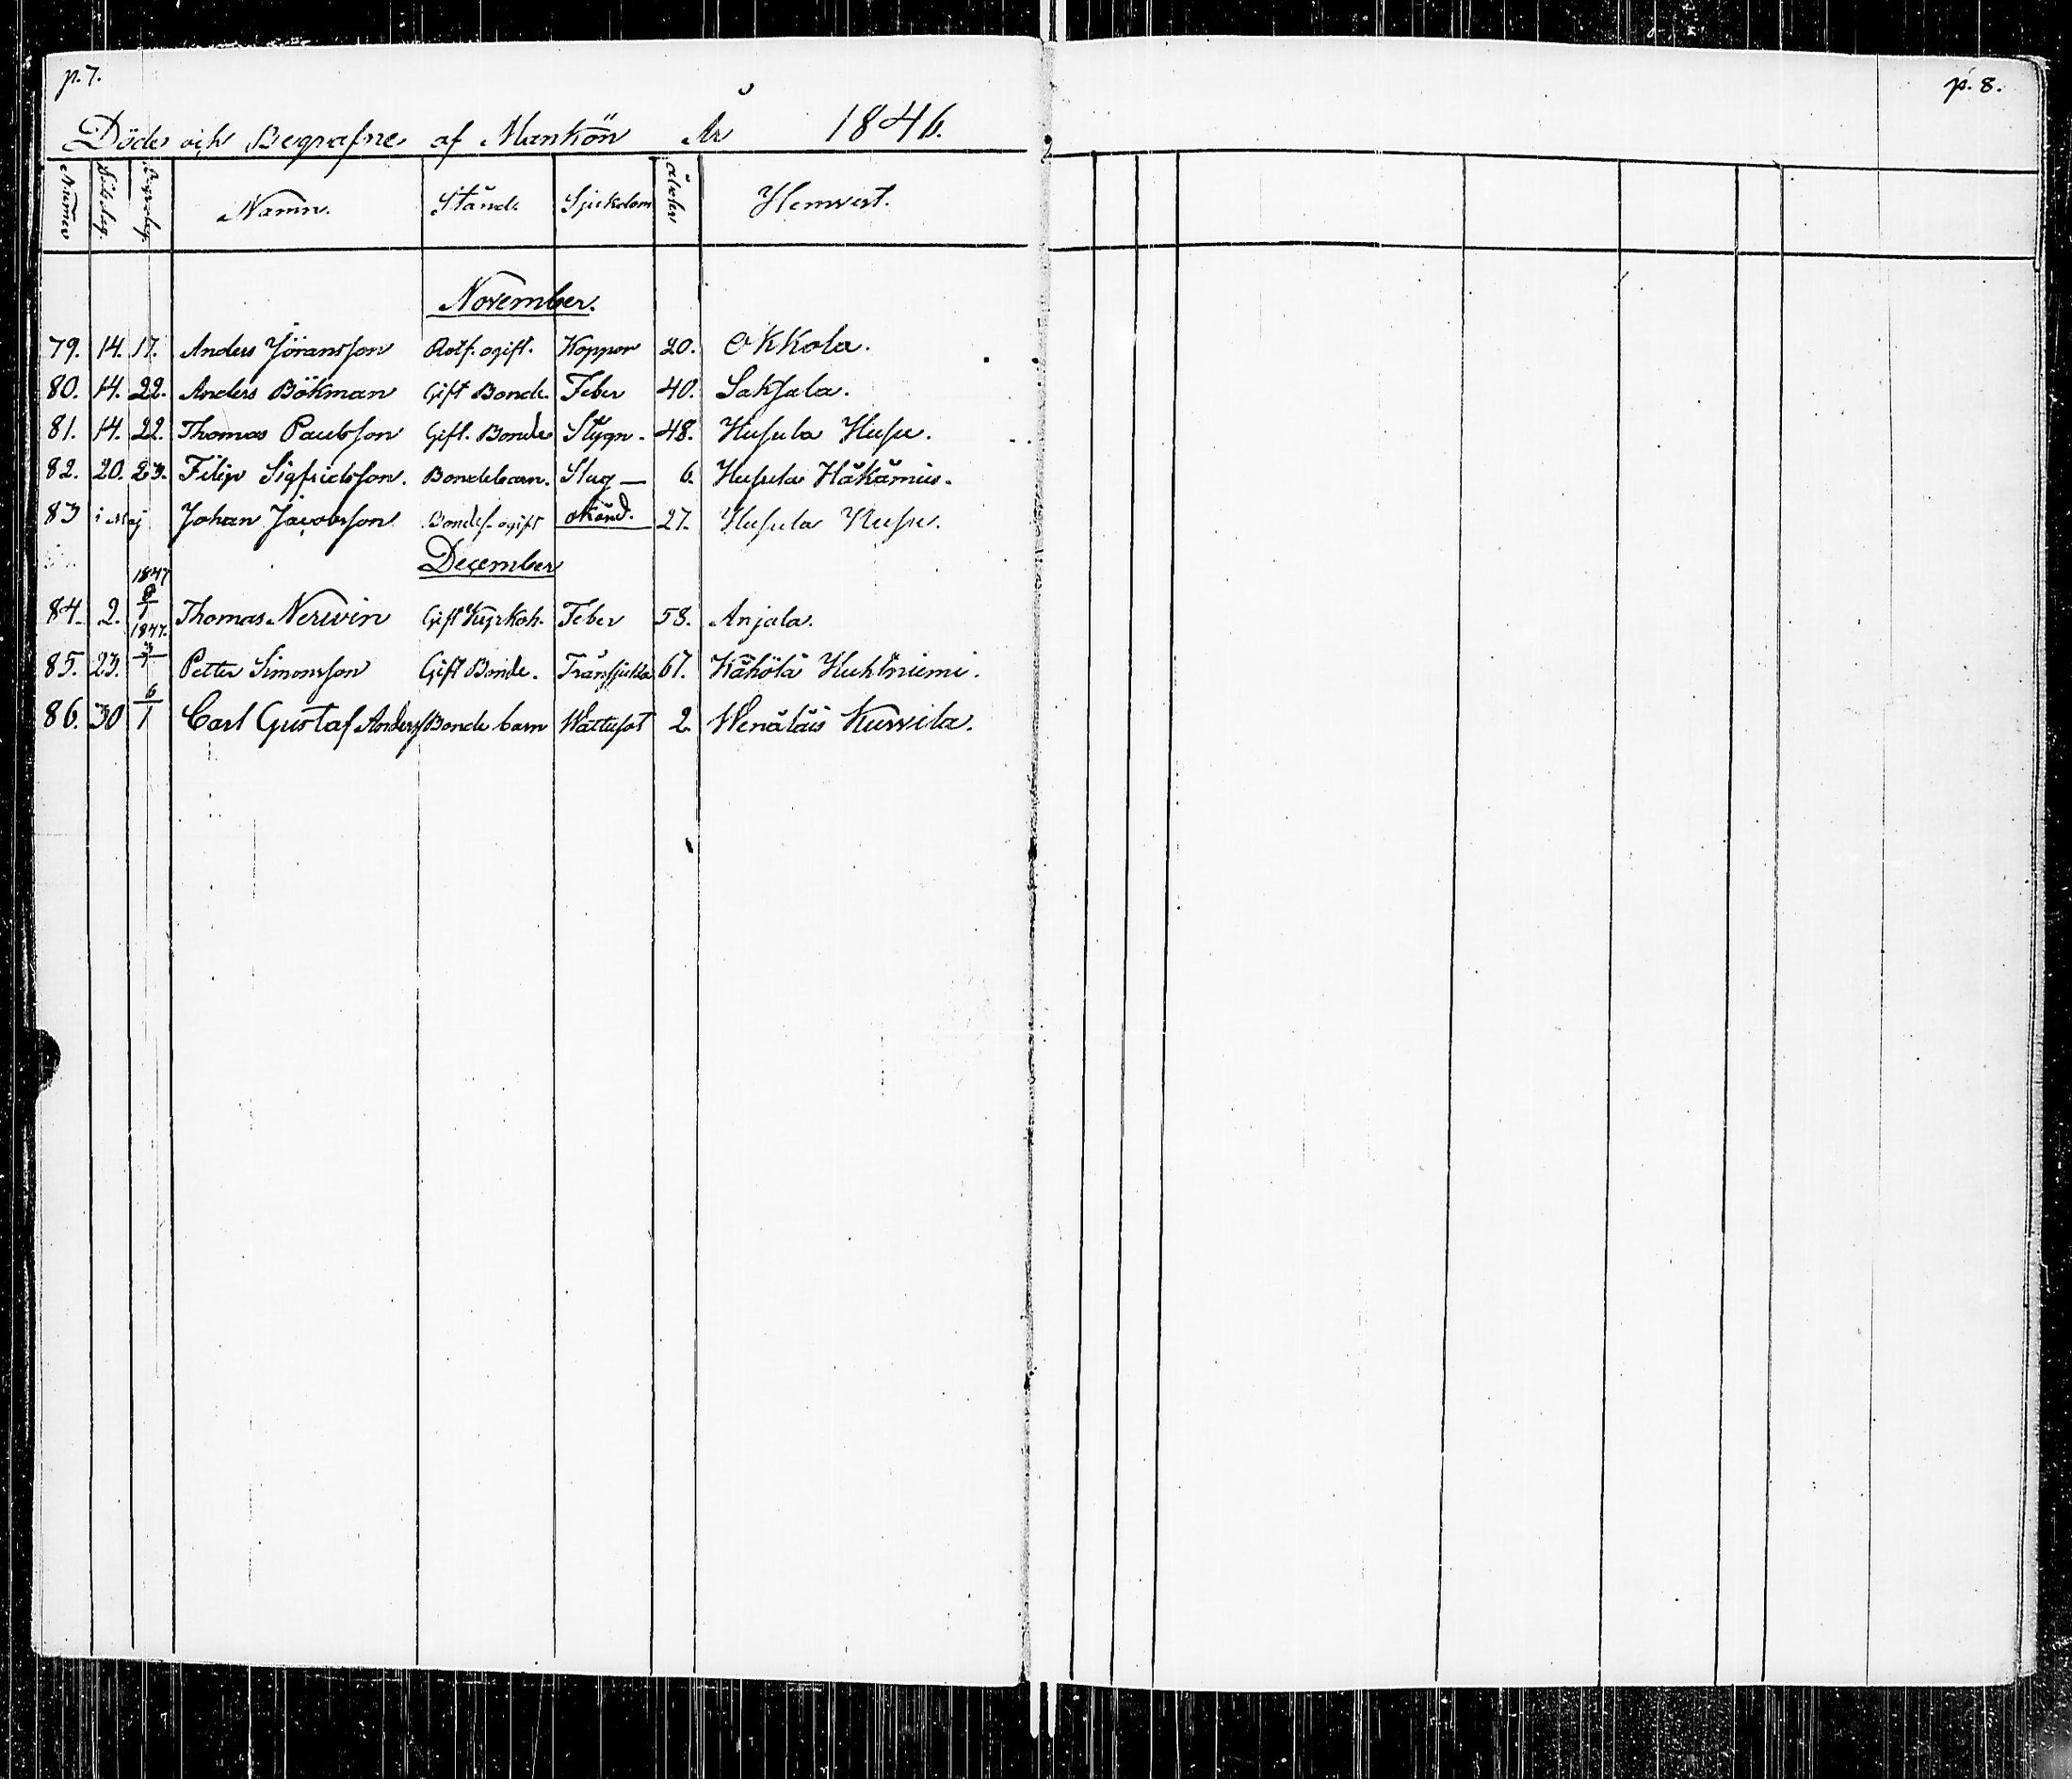 p. 7.
p. 8.
Döde och Begrafne af Mankön År 1846.
Numer Dödsdag. Begrdag. Namn. Stånd. Sjukdom Ålder Hemvist.
November.
79. 14. 17. Anders Jöransson Rotf. ogift. Koppor 20. Okkola.
80. 14. 22. Anders Bökman Gift Bonde. Feber 40. Saksala.
81. 14. 22. Thomas Paulsson Gift. Bonde Stygn. 48. Husula Husu.
82. 20. 23. Filip Sigfridsson. Bondebarn. Slag — 6. Husula Håkämies.
83 i Maj Johan Jacobsson Bondes. ogift okänd. 27. Husula Husu.
December
84. 2. 1847 8/1 Thomas Nerwin Gift Feber 58. Anjala.
85. 23. 1847. 3/1 Petter Simonsson Gift Bonde. Trånsjuka 67. Kähölä Huhtniemi.
86. 30 6/1 Carl Gustaf Anderss Bonde barn Wattusot 2. Wenäläis Kurvila.